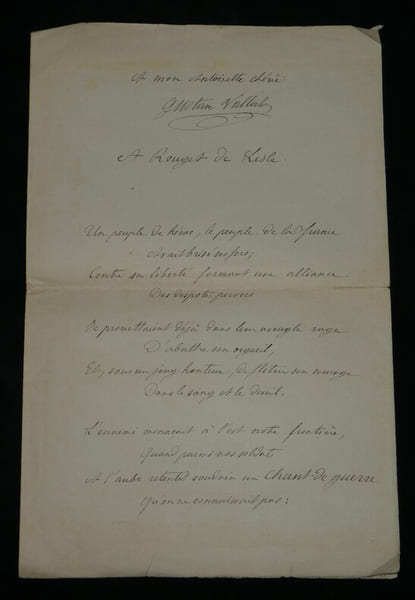 A mon Antoinette chérie
Gustave Vallat
A Rouget de Lisle.
Un peuple de héros, le peuple de la France
Avait brisé ses fers;
Contre sa liberté formant une alliance
Des despotes pervers
Se promettaient déjà dans leur aveugle rage
D'abattre son orgueil,
Et, sous un joug honteux, de flétrir son courage
Dans le sang et le deuil.
L'ennemi menaçait à l'est notre frontière,
Quand parmi nos soldats
A l'aube retentit soudain un Chant de guerre
Qu'on ne connaissait pas :